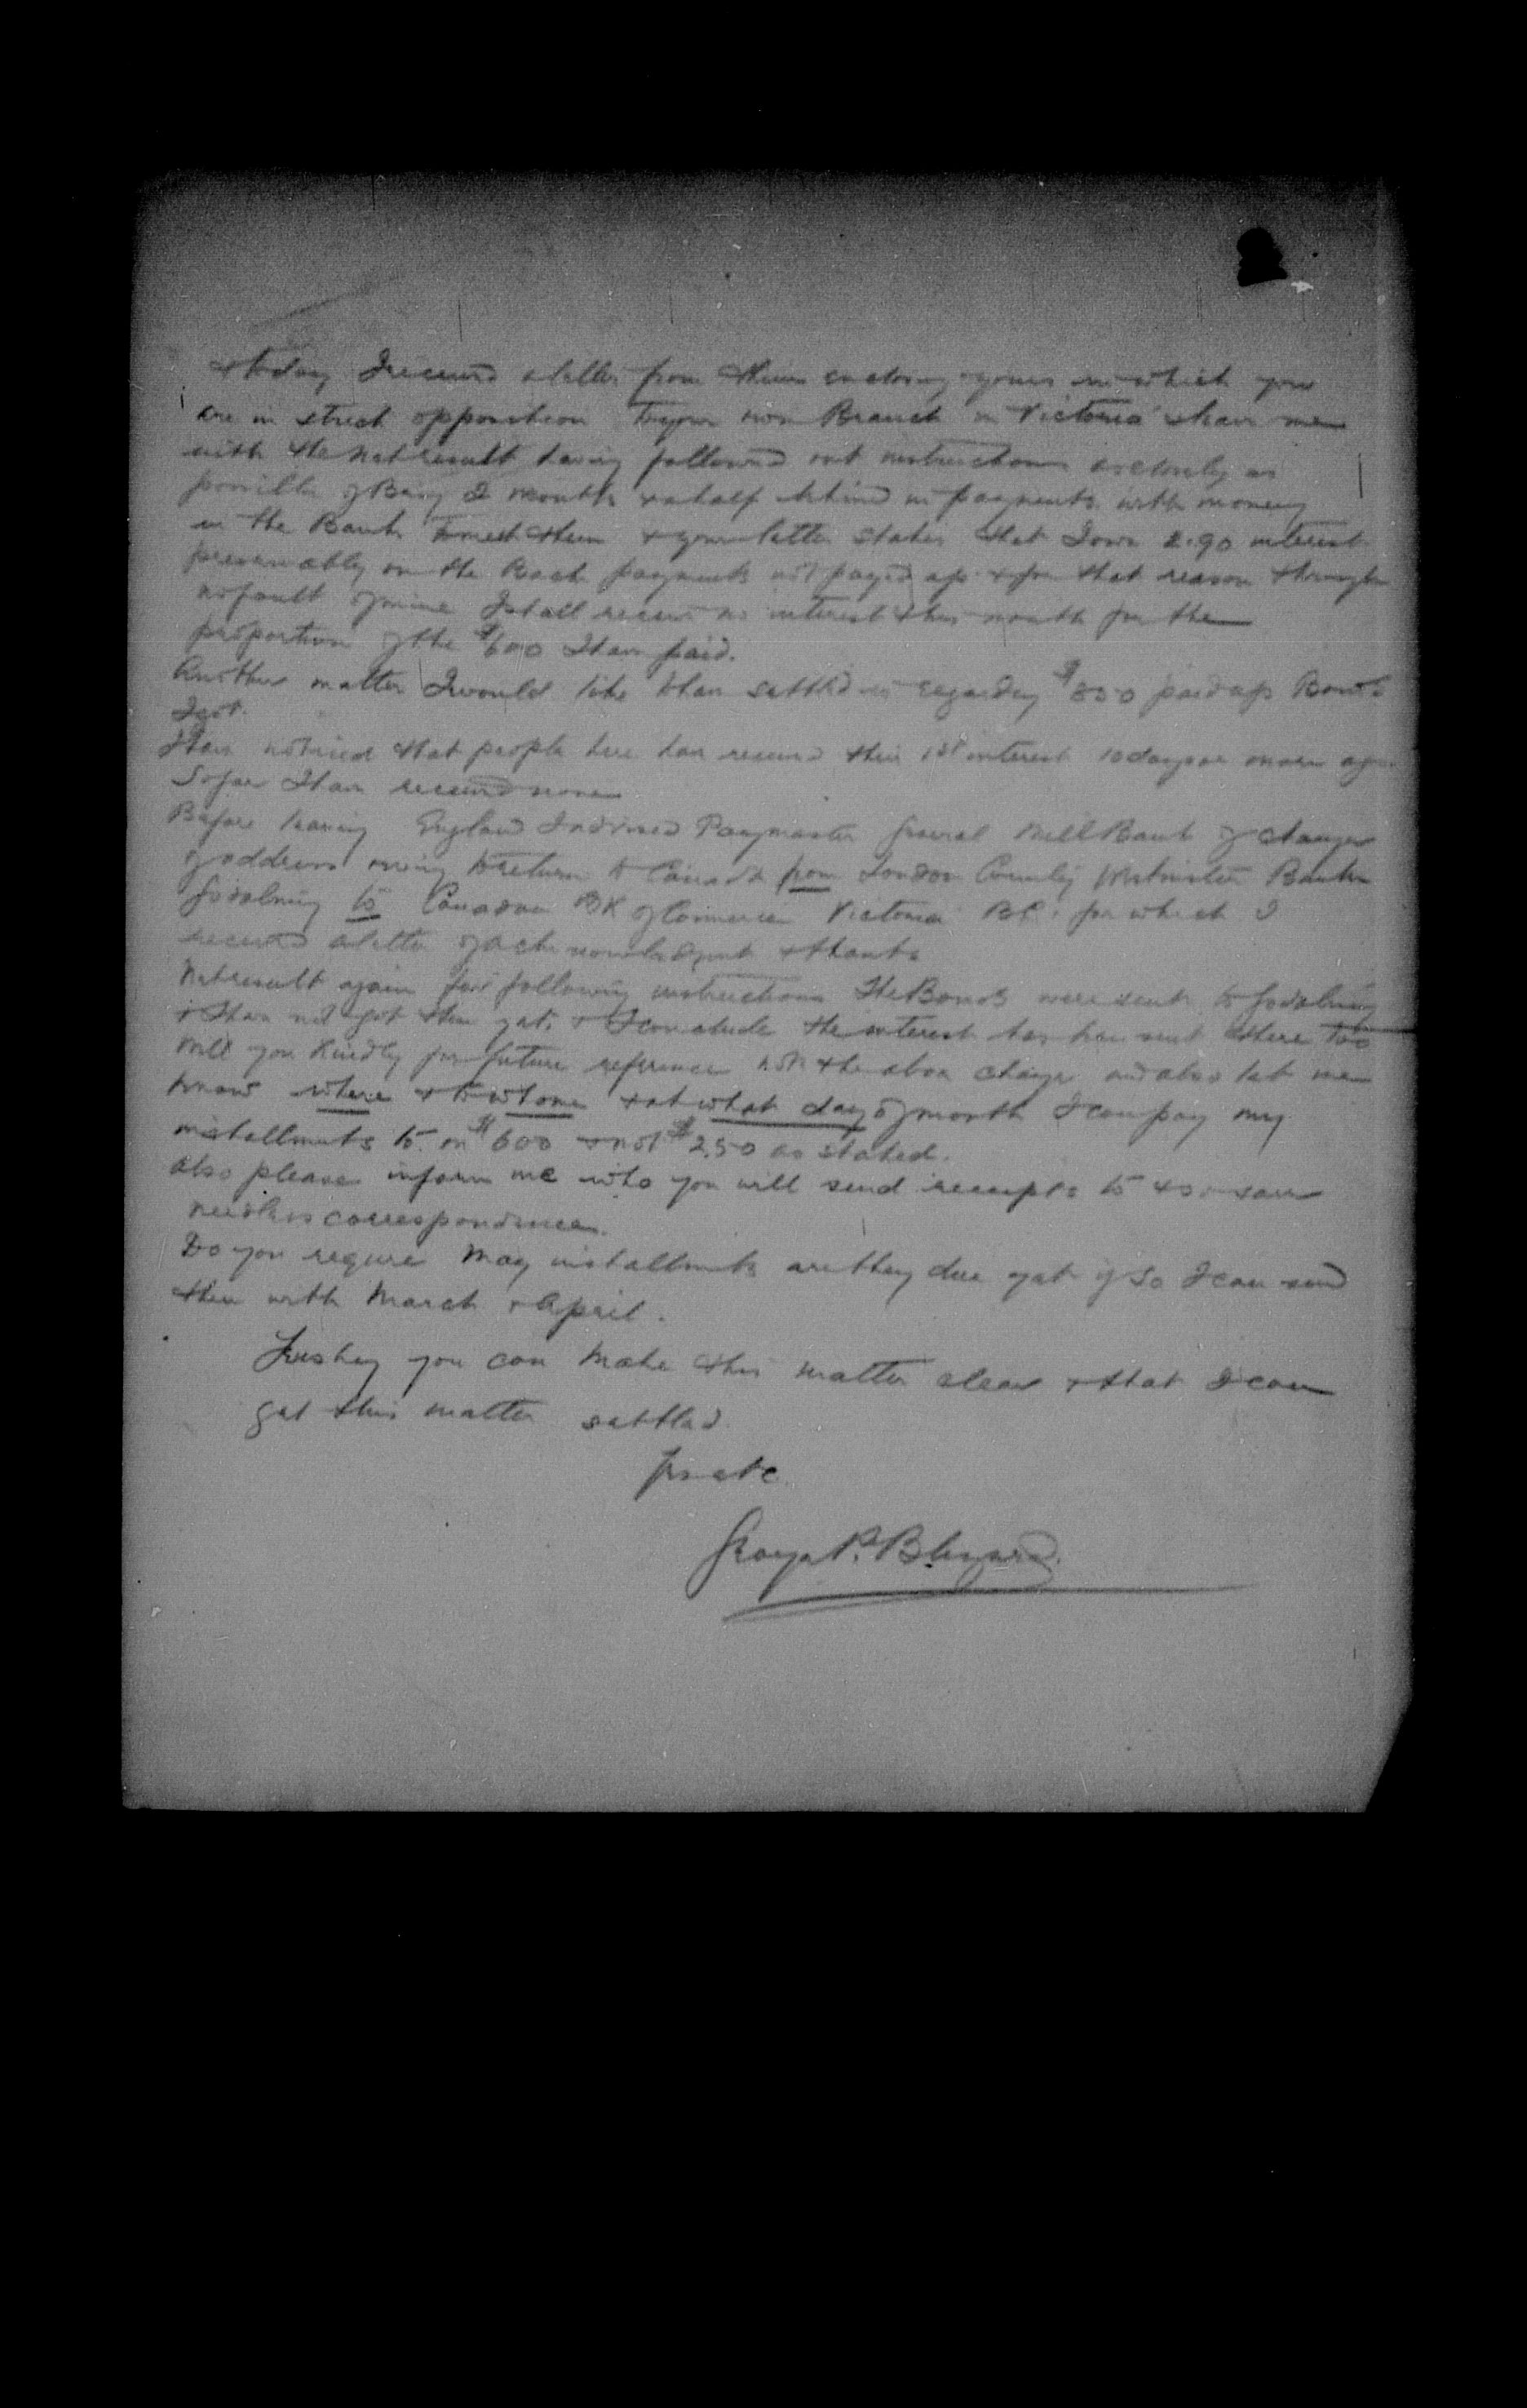 & today I received a letter from them enclosing yours in which you
are in strict opposition to your own Branch in Victoria & leave me
with the net result having followed out instructions as closely as
possible of Being 2 months & a half behind in payments with money
in the Bank to meet them & your letter states that I owe 2.90 interest
presumably on the Back payments not payed up & for that reason through
no fault of mine I shall receive no interest this month for the
proportion of the $600 I have paid.
Another matter I would like to have settled is regarding $850 paid up Bonds
I got.
I have noticed that people here have received their 1st interest 10 days or more ago
So far I have received none
Before leaving England I advised Paymaster General Millbank of change
of address owing to return to Canada from London County Westminster Bank
Godalming to Canadian BK of Commerce Victoria BC. for which I
received a letter of acknowledgment & thanks
Net result again for following instructions The Bonds were sent to Godalming
& I have not got them yet. & I conclude the interest has been sent there too
Will you Kindly for future reference note the above change and also let me
know where & to whome & at what day of month I can pay my
installments to on $600 & not $250 as stated.
also please inform me who you will send receipts to & so save
needless correspondence.
Do you requre May installments are they due yet if So I can send
them with March & April.
Trusting you can make this matter clear & that I can
get this matter settled.
Yrs etc.
George P. Blizard.